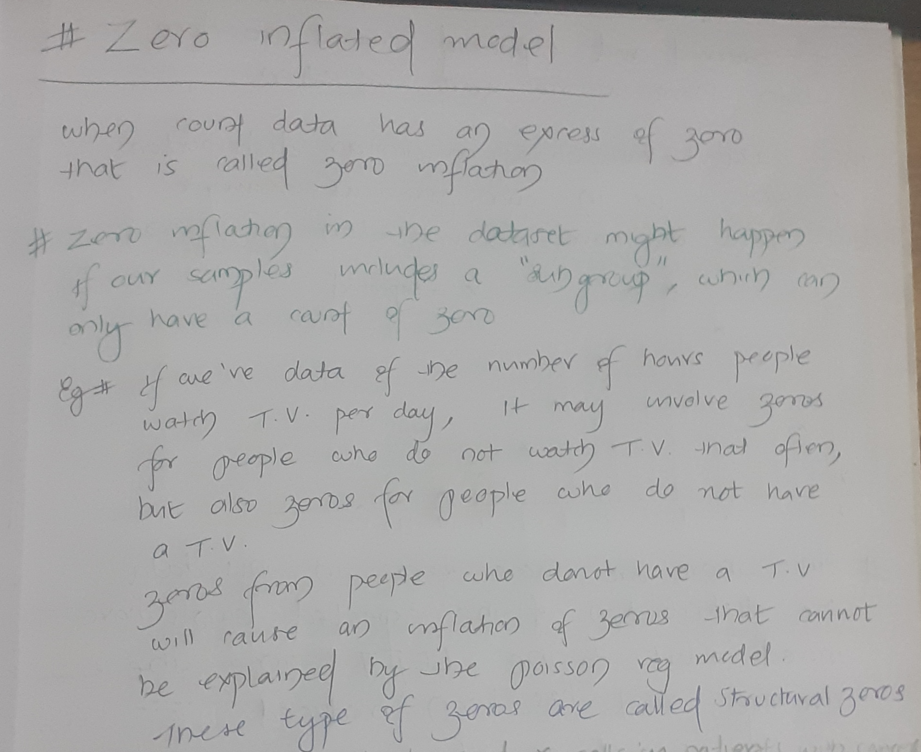 # Zero inflated model
when count data has an express of zero
that is called zero inflation
# Zero inflation in the dataset might happen
if our samples includes a "sub group", which can
only have a count of zero
Eg # if we've data of the number of hours people
watch T.V. per day, it may involve zeros
for people who do not watch T.V. that often,
but also zeros for people who do not have
a T.V.
zeros from people who donot have a T.V
will cause an inflation of zeros that cannot
be explained by the poisson reg model.
These type of zeros are called structural zeros